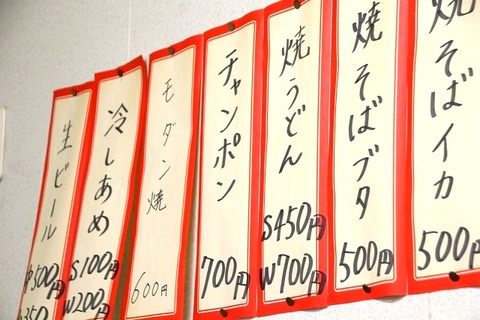 焼そばイカ
500円
焼そばブタ
500円
焼うどん
S450円
W700円
チャンポン
700円
モダン焼
600円
冷しあめ
S100円
W200円
生ビール
中500円
小350